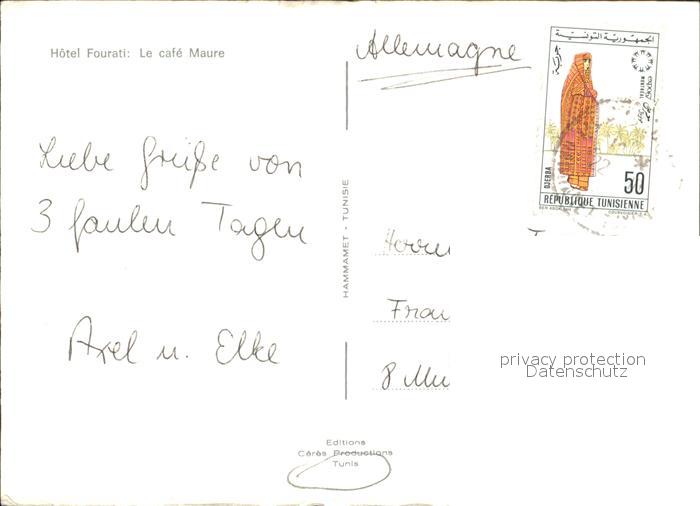 Hôtel Fourati: Le café Maure
Allemagne
Liebe Grüße von
3 faulen Tagen
Axel u. Elke
HAMMAMET - TUNISIE
Editions
Cérès Productions
Tunis
الجمهورية التونسية
جربة
DJERBA
50
REPUBLIQUE TUNISIENNE
Herrn
8 Mü
privacy protection
Datenschutz